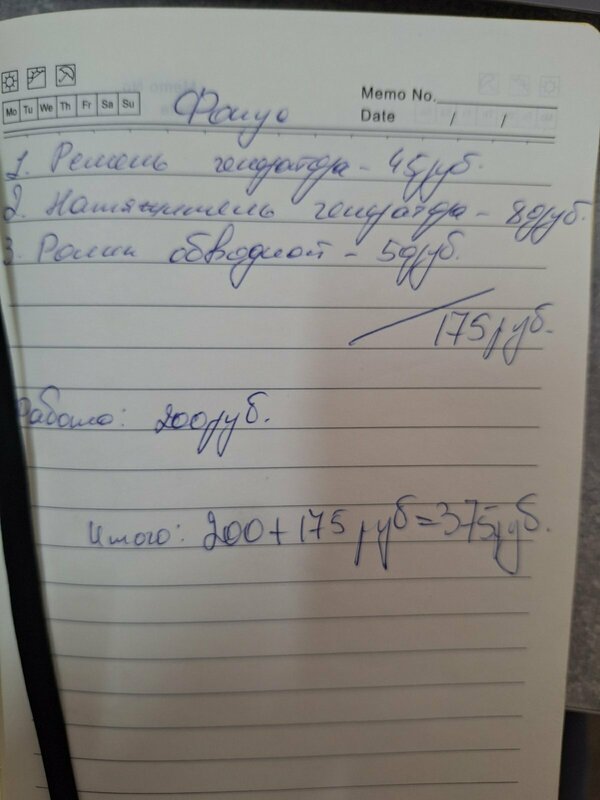 Memo No.
Mo Tu We Th Fr Sa Su
Date / /
1. Ремень генератора - 45руб.
2. Натяжитель генератора - 80руб.
3. Ролик обводной - 50руб.
175руб.
Работа: 200руб.
Итого: 200+175 руб=375руб.